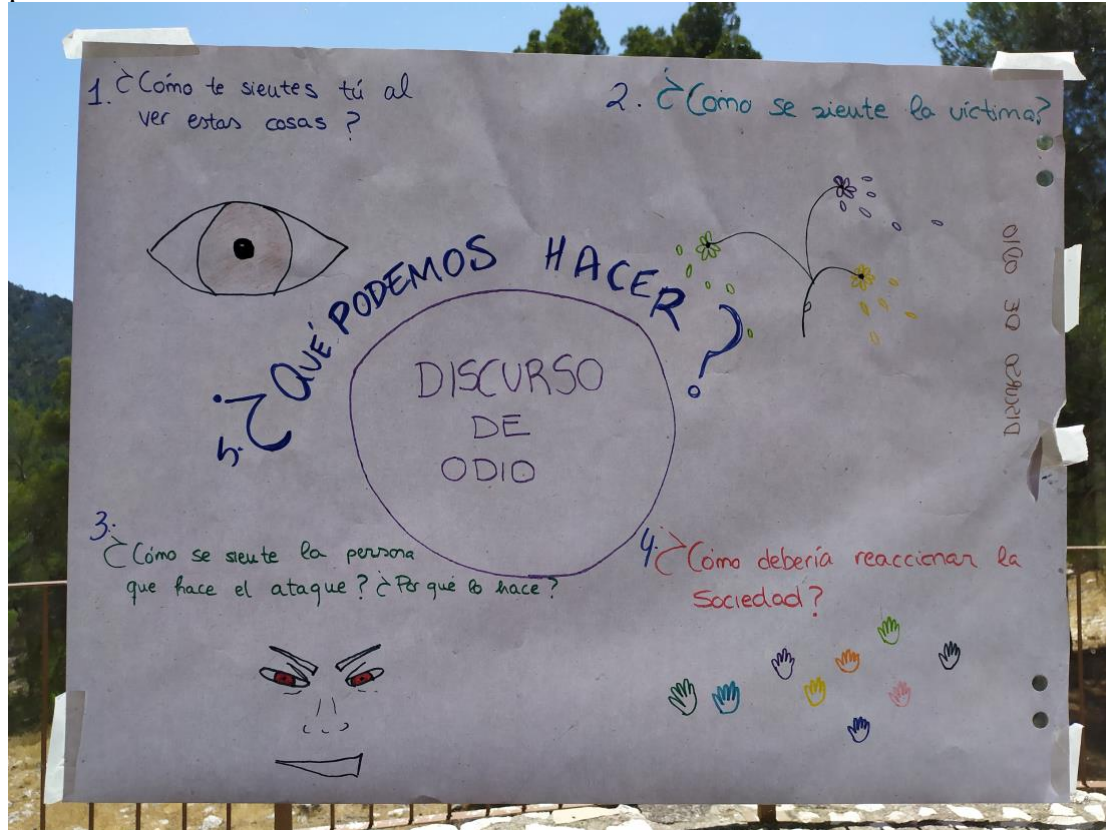 1. ¿Cómo te sientes tú al
ver estas cosas?
2. ¿Cómo se siente la víctima?
5. ¿QUÉ PODEMOS HACER?
DISCURSO
DE
ODIO
DISCURSO DE ODIO
3. ¿Cómo se siente la persona
que hace el ataque? ¿Por qué lo hace?
4. ¿Cómo debería reaccionar la
Sociedad?